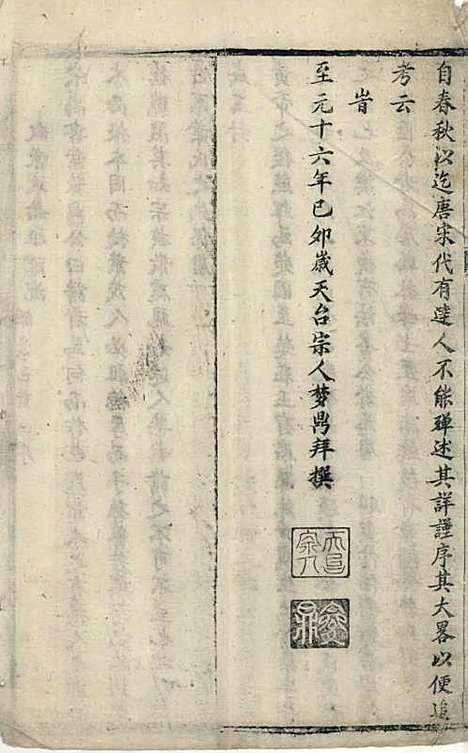 自春秋以迄唐宋代有達人不能殫述其詳謹序其大畧以便追
考云
旹
至元十六年已卯歲天台宗人夢鼎拜撰
夢鼎